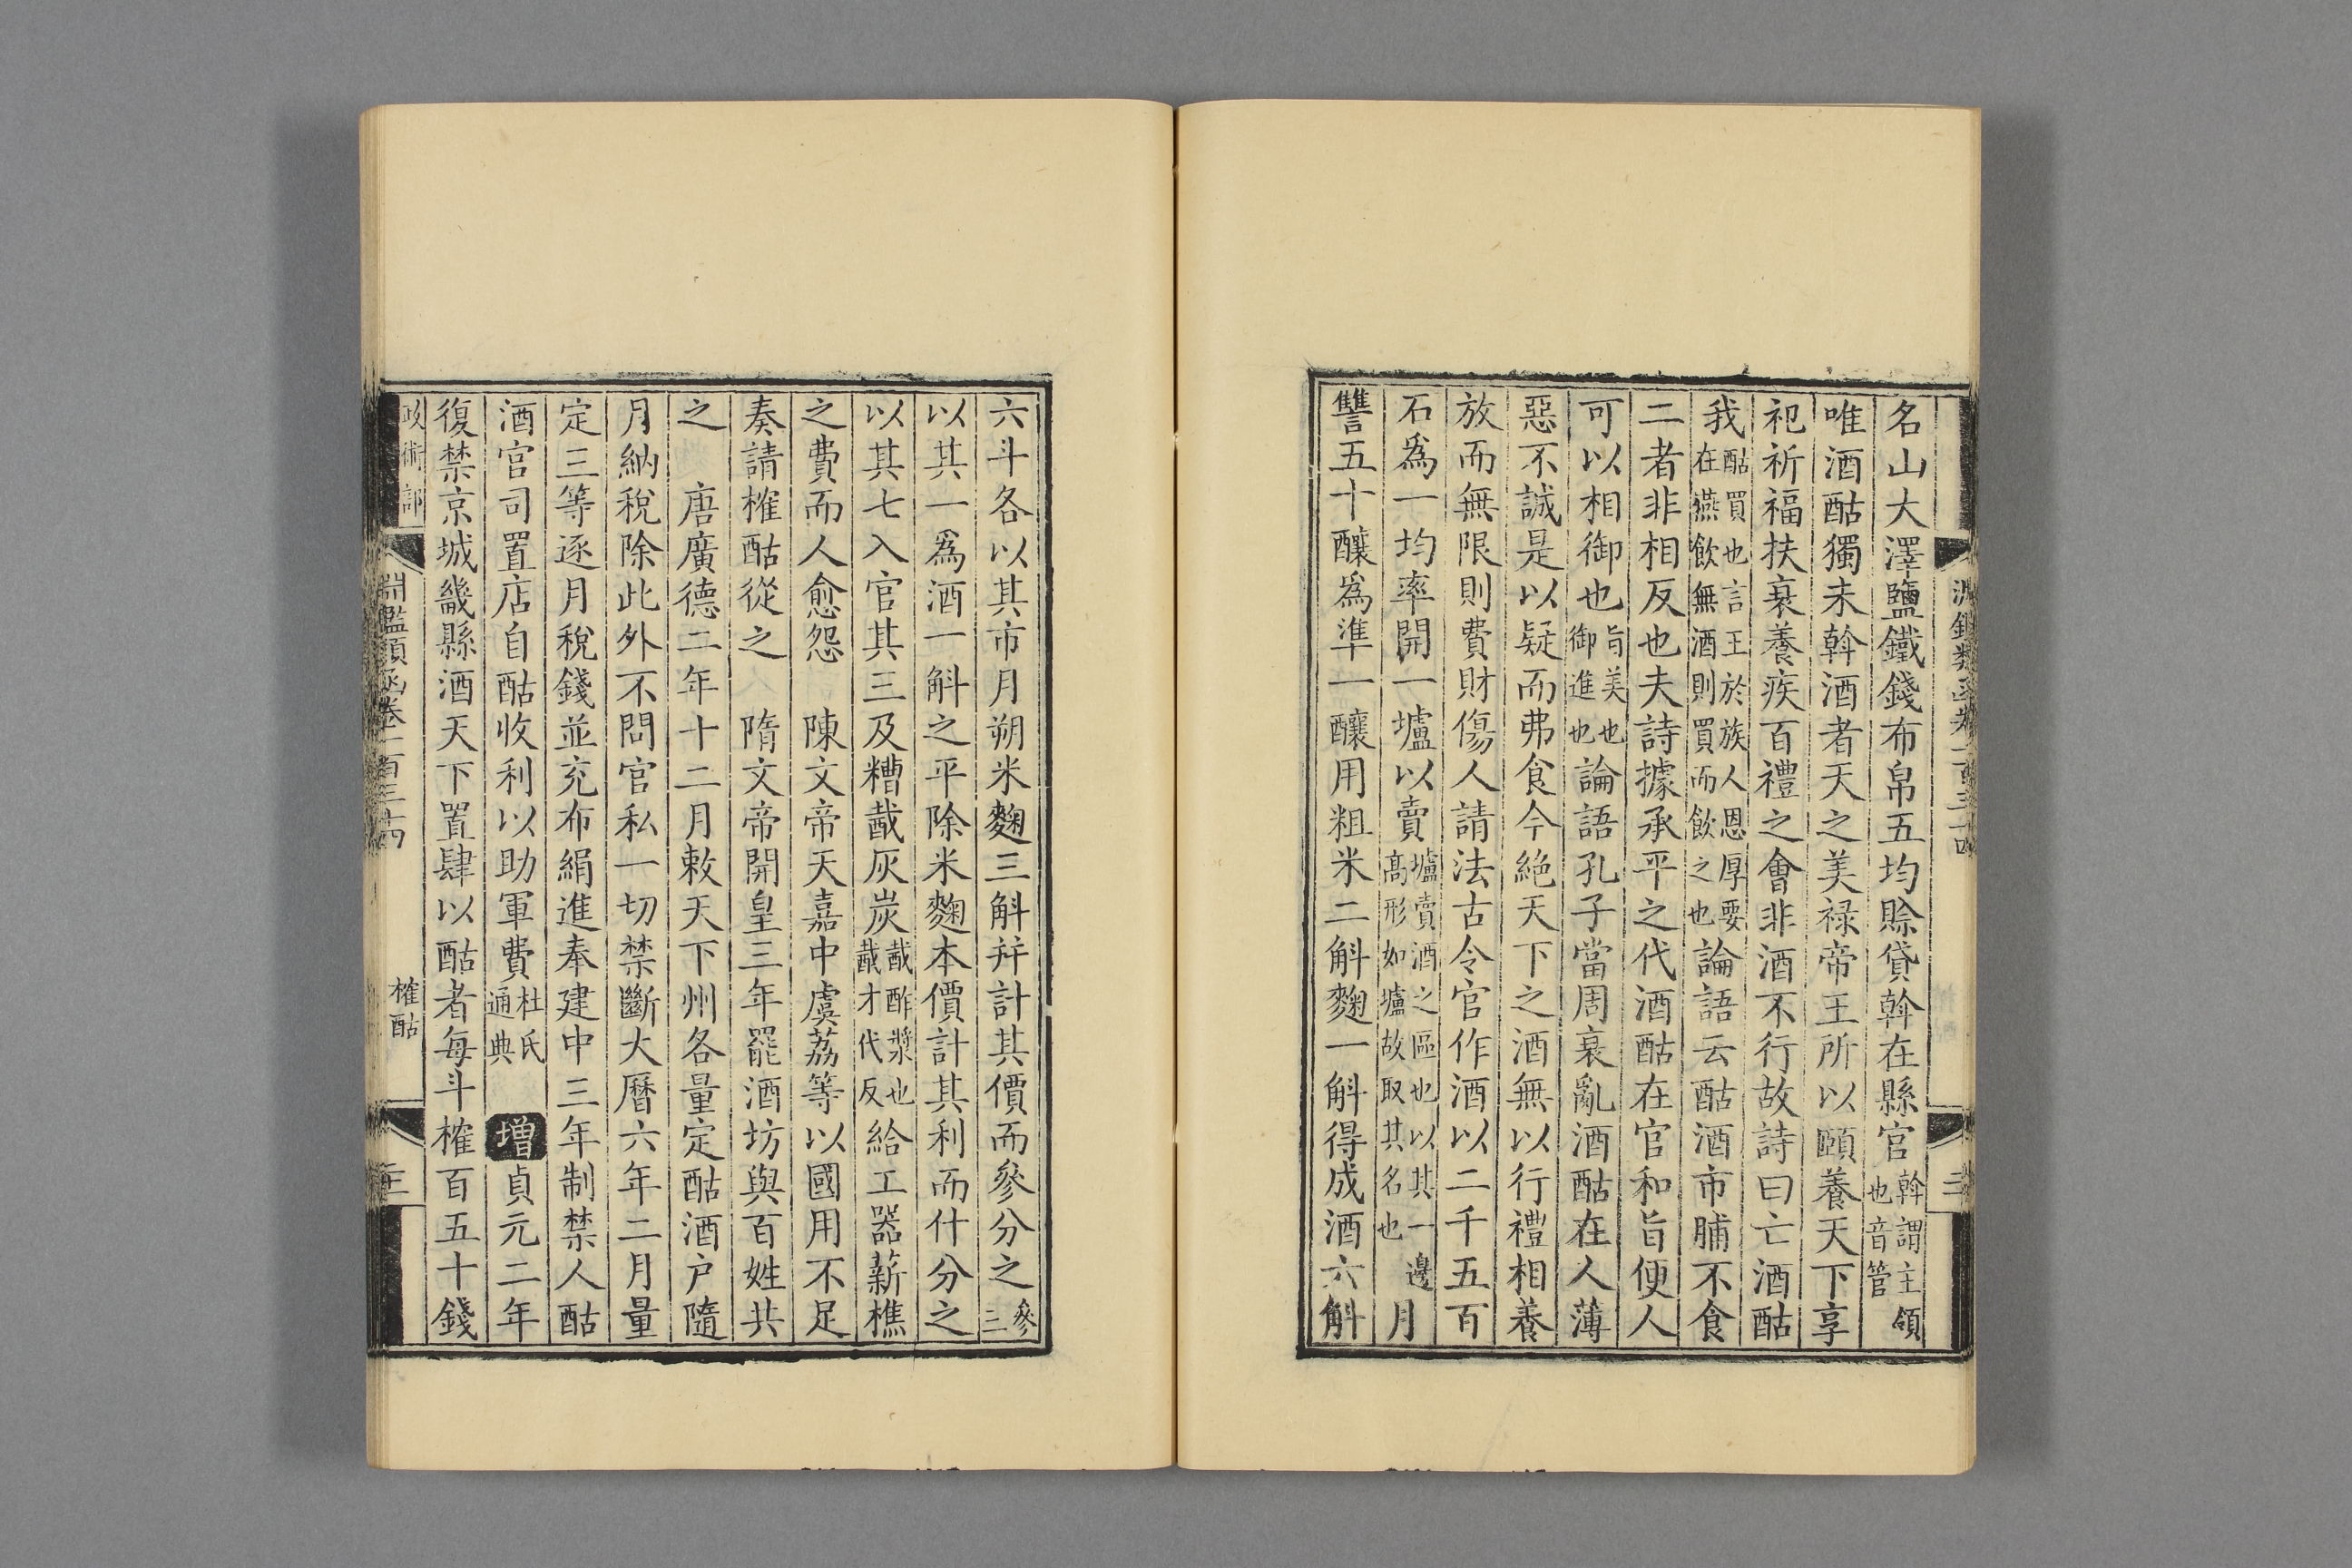 名山大澤鹽鐵錢布帛五均賒貸斡在縣官斡謂主領也音管
唯酒酤獨未斡酒者天之美祿帝王所以頤養天下享
祀祈福扶衰養疾百禮之會非酒不行故詩曰亡酒酤
我酤買也言王於族人恩厚要在燕飲無酒則買而飲之也論語云酤酒市脯不食
二者非相反也夫詩據承平之代酒酤在官和旨便人
可以相御也旨美也御進也論語孔子當周衰亂酒酤在人薄
惡不誠是以疑而弗食今絶天下之酒無以行禮相養
放而無限則費財傷人請法古令官作酒以二千五百
石爲一均率開一壚以賣壚賣酒之區也以其一邊高形如壚故取其名也月
讐五十釀爲準一釀用粗米二斛麴一斛得成酒六斛
六斗各以其市月朔米麴三斛幷計其價而參分之參三
以其一爲酒一斛之平除米麴本價計其利而什分之
以其七入官其三及糟酨灰炭酨酢漿也酨才代反給工器薪樵
之費而人愈怨 陳文帝天嘉中虞荔等以國用不足
奏請榷酤從之 隋文帝開皇三年罷酒坊與百姓共
之 唐廣德二年十二月敕天下州各量定酤酒户隨
月納稅除此外不問官私一切禁斷大曆六年二月量
定三等逐月稅錢並充布絹進奉建中三年制禁人酤
酒官司置店自酤收利以助軍費杜氏通典 增貞元二年
復禁京城畿縣酒天下置肆以酤者每斗榷百五十錢
政術部 淵鑑類函卷一百三十四 榷酤 三